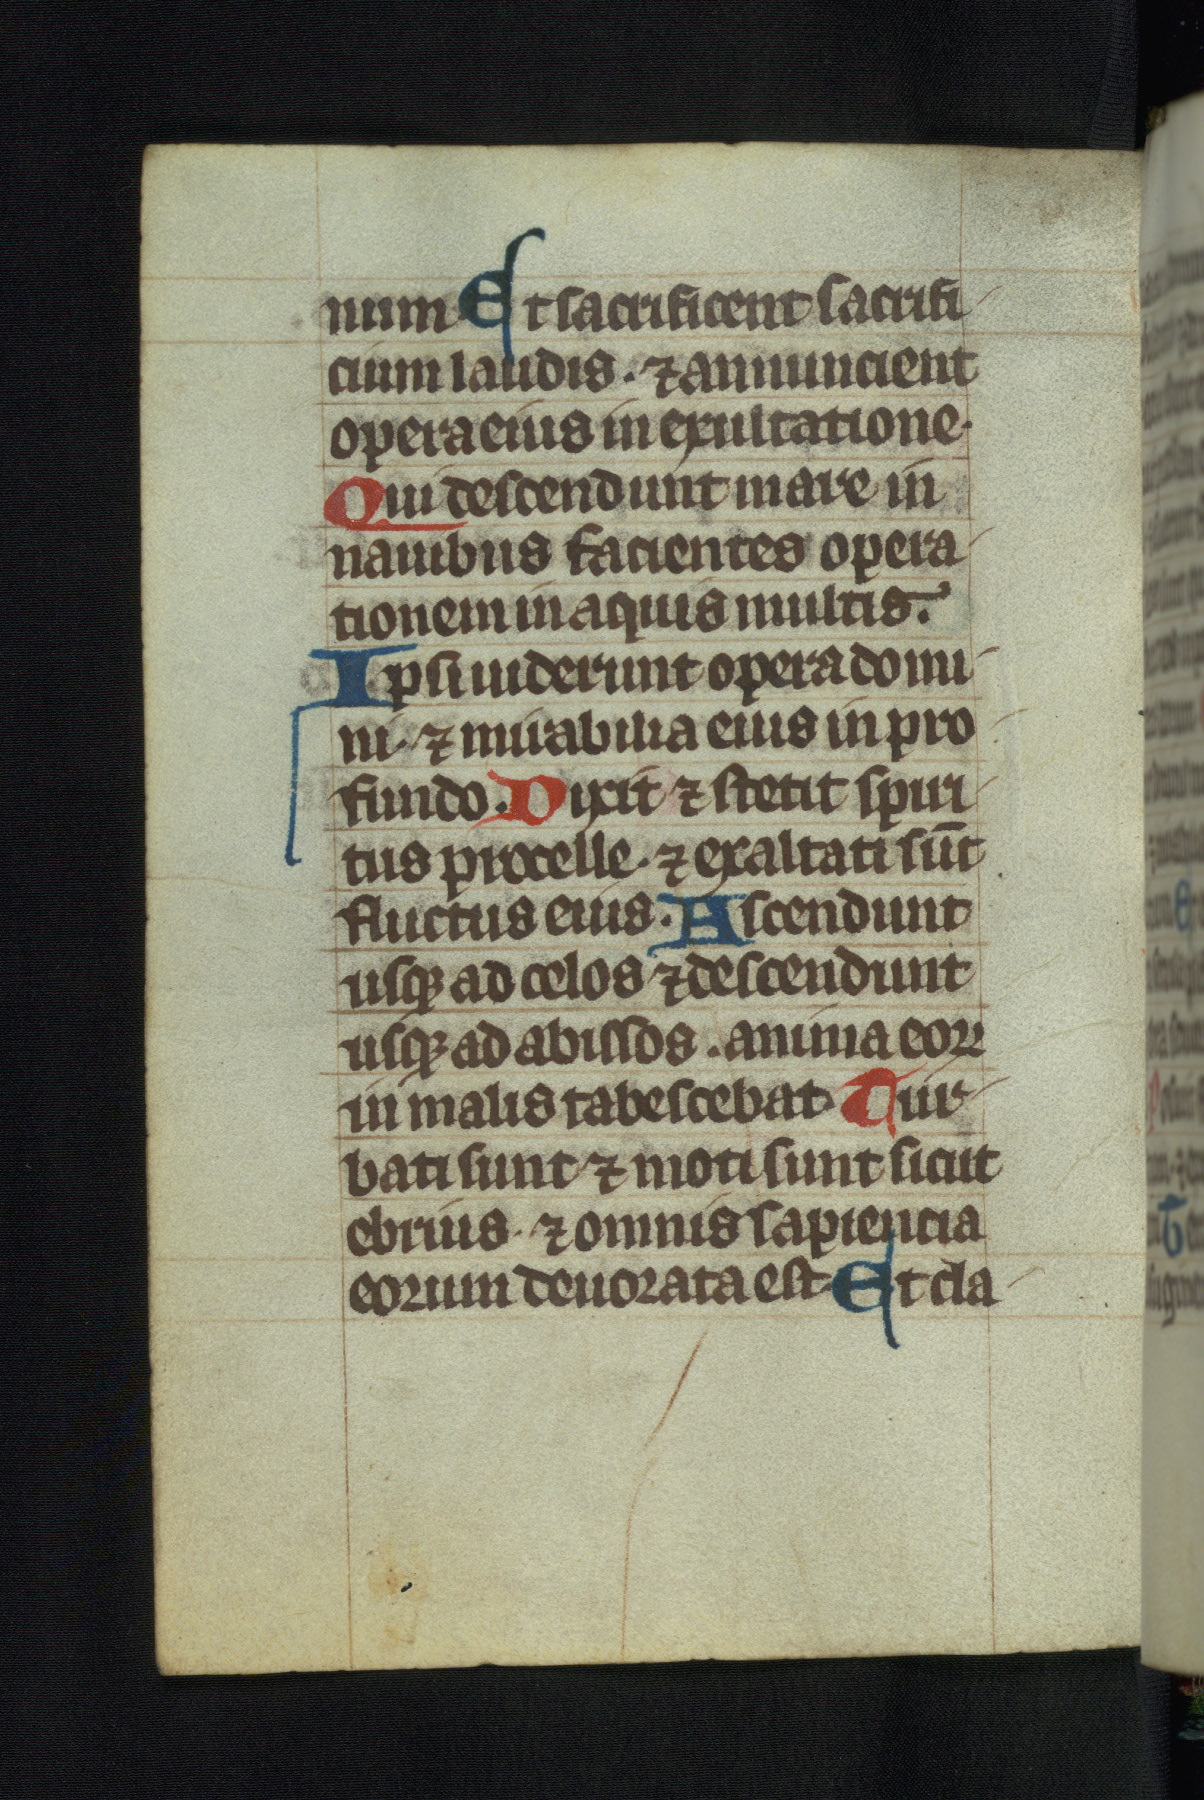 num Et sacrificent sacrifi
cium laudis. ⁊ annuncient
opera eius in exultatione.
Qui descendunt mare in
nauibus facientes opera
tionem in aquis multis.
Ipsi uiderunt opera domi
ni. ⁊ mirabilia eius in pro
fundo. Dixit ⁊ stetit spiri
tus procelle. ⁊ exaltati sūt
fluctus eius. Ascendunt
usqꝫ ad celos ⁊ descendunt
usqꝫ ad abissos. anima eoꝝ
in malis tabescebat. Tur
bati sunt ⁊ moti sunt sicut
ebrius. ⁊ omnis sapiencia
eorum deuorata est. Et cla